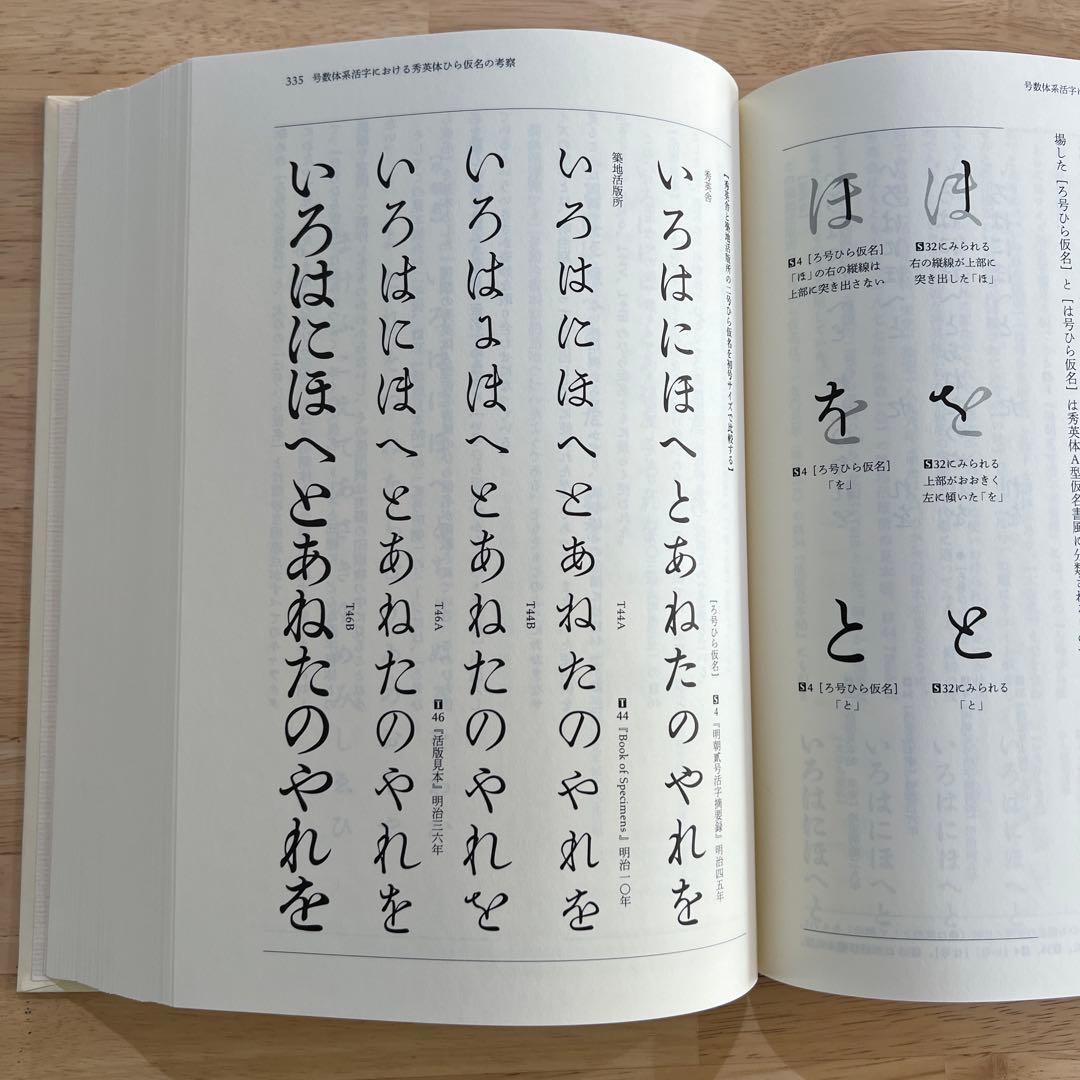 号数体系活字に
場した［ろ号ひら仮名］と［は号ひら仮名］は秀英体A型仮名書風に分類され
ほ
S32にみられる
右の縦線が上部に
突き出した「ほ」
ほ
S4［ろ号ひら仮名］
「ほ」の右の縦線は
上部に突き出さない
を
S32にみられる
上部がおおきく
左に傾いた「を」
を
S4［ろ号ひら仮名］
「を」
と
S32にみられる
「と」
と
S4［ろ号ひら仮名］
「と」
335 号数体系活字における秀英体ひら仮名の考察
［秀英舎と築地活版所の二号ひら仮名を初号サイズで比較する］
秀英舎
［ろ号ひら仮名］
S4『明朝貳号活字摘要録』明治四五年
いろはにほへとあねたのやれを
築地活版所
T44A
T44『Book of Specimens』明治一〇年
いろはにほへとあねたのやれを
T44B
いろはにほへとあねたのやれを
T46A
T46『活版見本』明治三六年
いろはにほへとあねたのやれを
T46B
いろはにほへとあねたのやれを